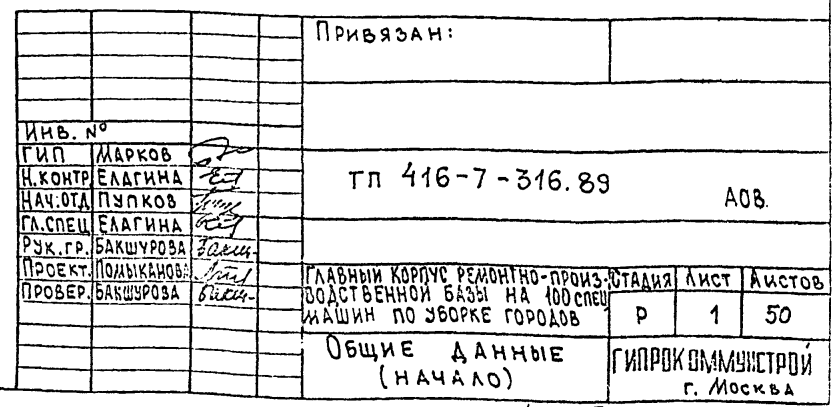 Привязан:
Инв. №
ГИП Марков
Н.контр Елагина
Нач.отд Пупков
Гл.спец Елагина
Рук.гр. Бакшурова
Проект. Помыканова
Провер. Бакшурова
ТП 416-7-316.89
АОВ.
Главный корпус ремонтно-произ-
водственной базы на 100 спец
машин по уборке городов
Стадия Лист Листов
Р 1 50
Общие данные
(начало)
ГИПРОКОММУНСТРОЙ
г. Москва